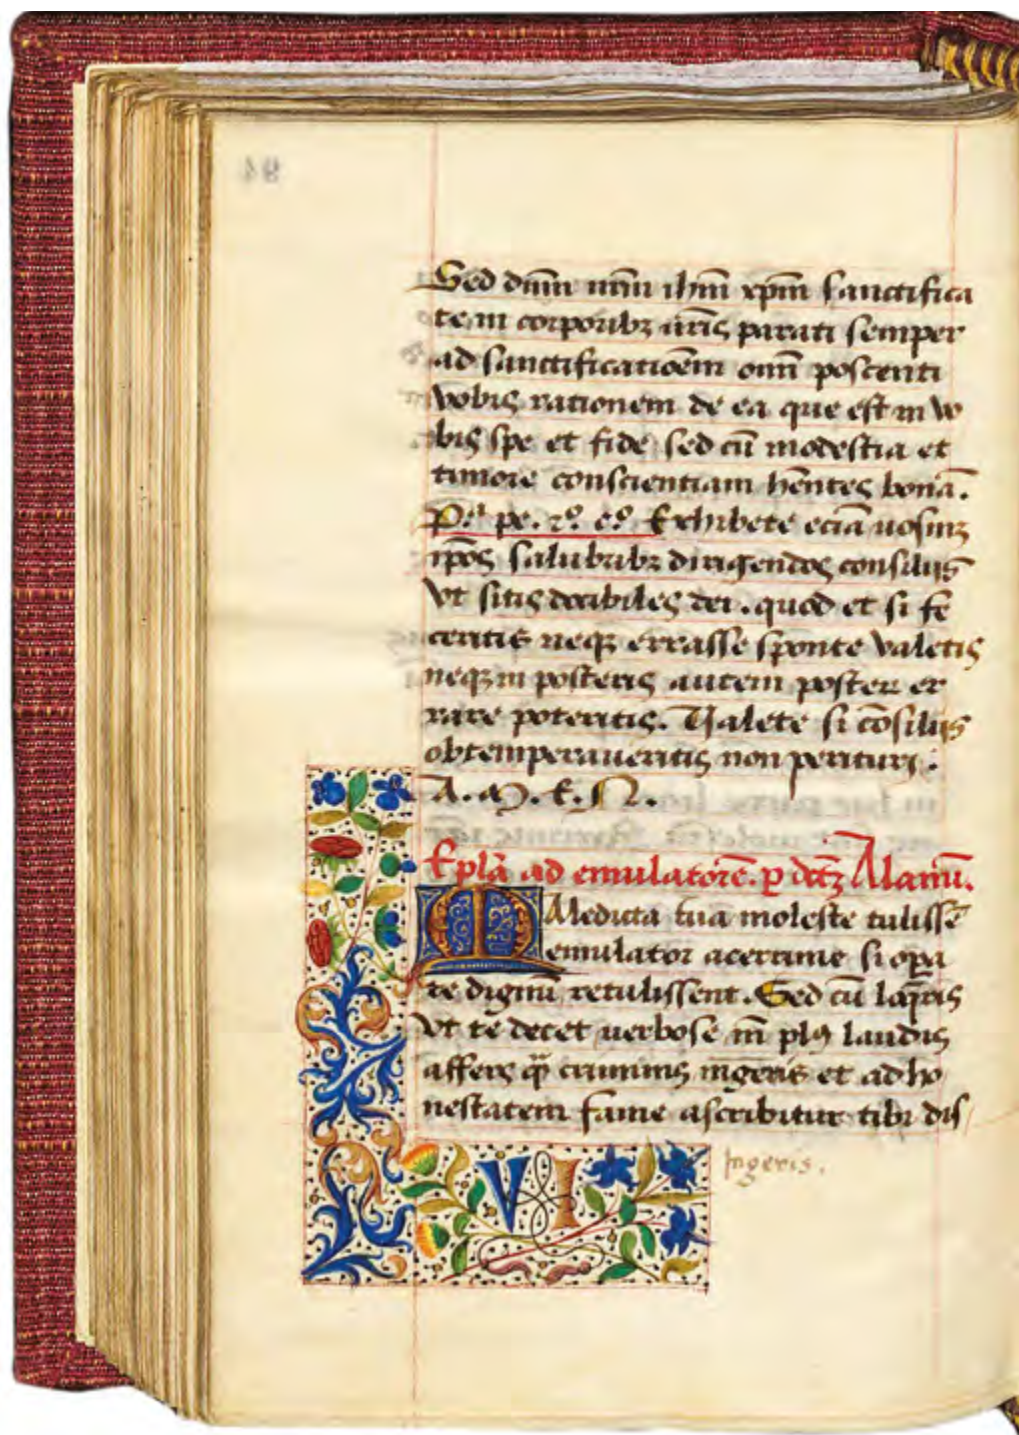 Sed dn̄m nr̄m ihm̄ xpm̄ sanctifica
te in corporibꝫ ur̄is parati semper
ad sanctificatiōem omī poscenti
vobis rationem de ea que est in vo
bis spe et fide sed cū modestia et
timore conscientiam hn̄tes bonā.
Pᵃ pe. 2º. cº. Exhibete eciā uosmꝫ
ip̄os salubribꝫ dirigendos consilijs
Vt sitis docibiles dei. quod et si fe
ceritis neqꝫ errasse sponte valetis
neqꝫ in posteris autem posteri er
rare poteritis. Valete si cōsilijs
obtemperaueritis non perituri.
A. M. E. N.
Ep̄la ad emulatorē. ꝑ dc̄ꝫ Alanū.
MAledicta tua moleste tulissē
emulator acerrime si oꝑa
te dignū retulissent. Sed cū loq̄ris
Vt te decet uerbose m̄ plꝰ laudis
affers q̄ criminis ingeris et ad ho
nestatem fame ascribitur tibi dis
Ingeris.
V I